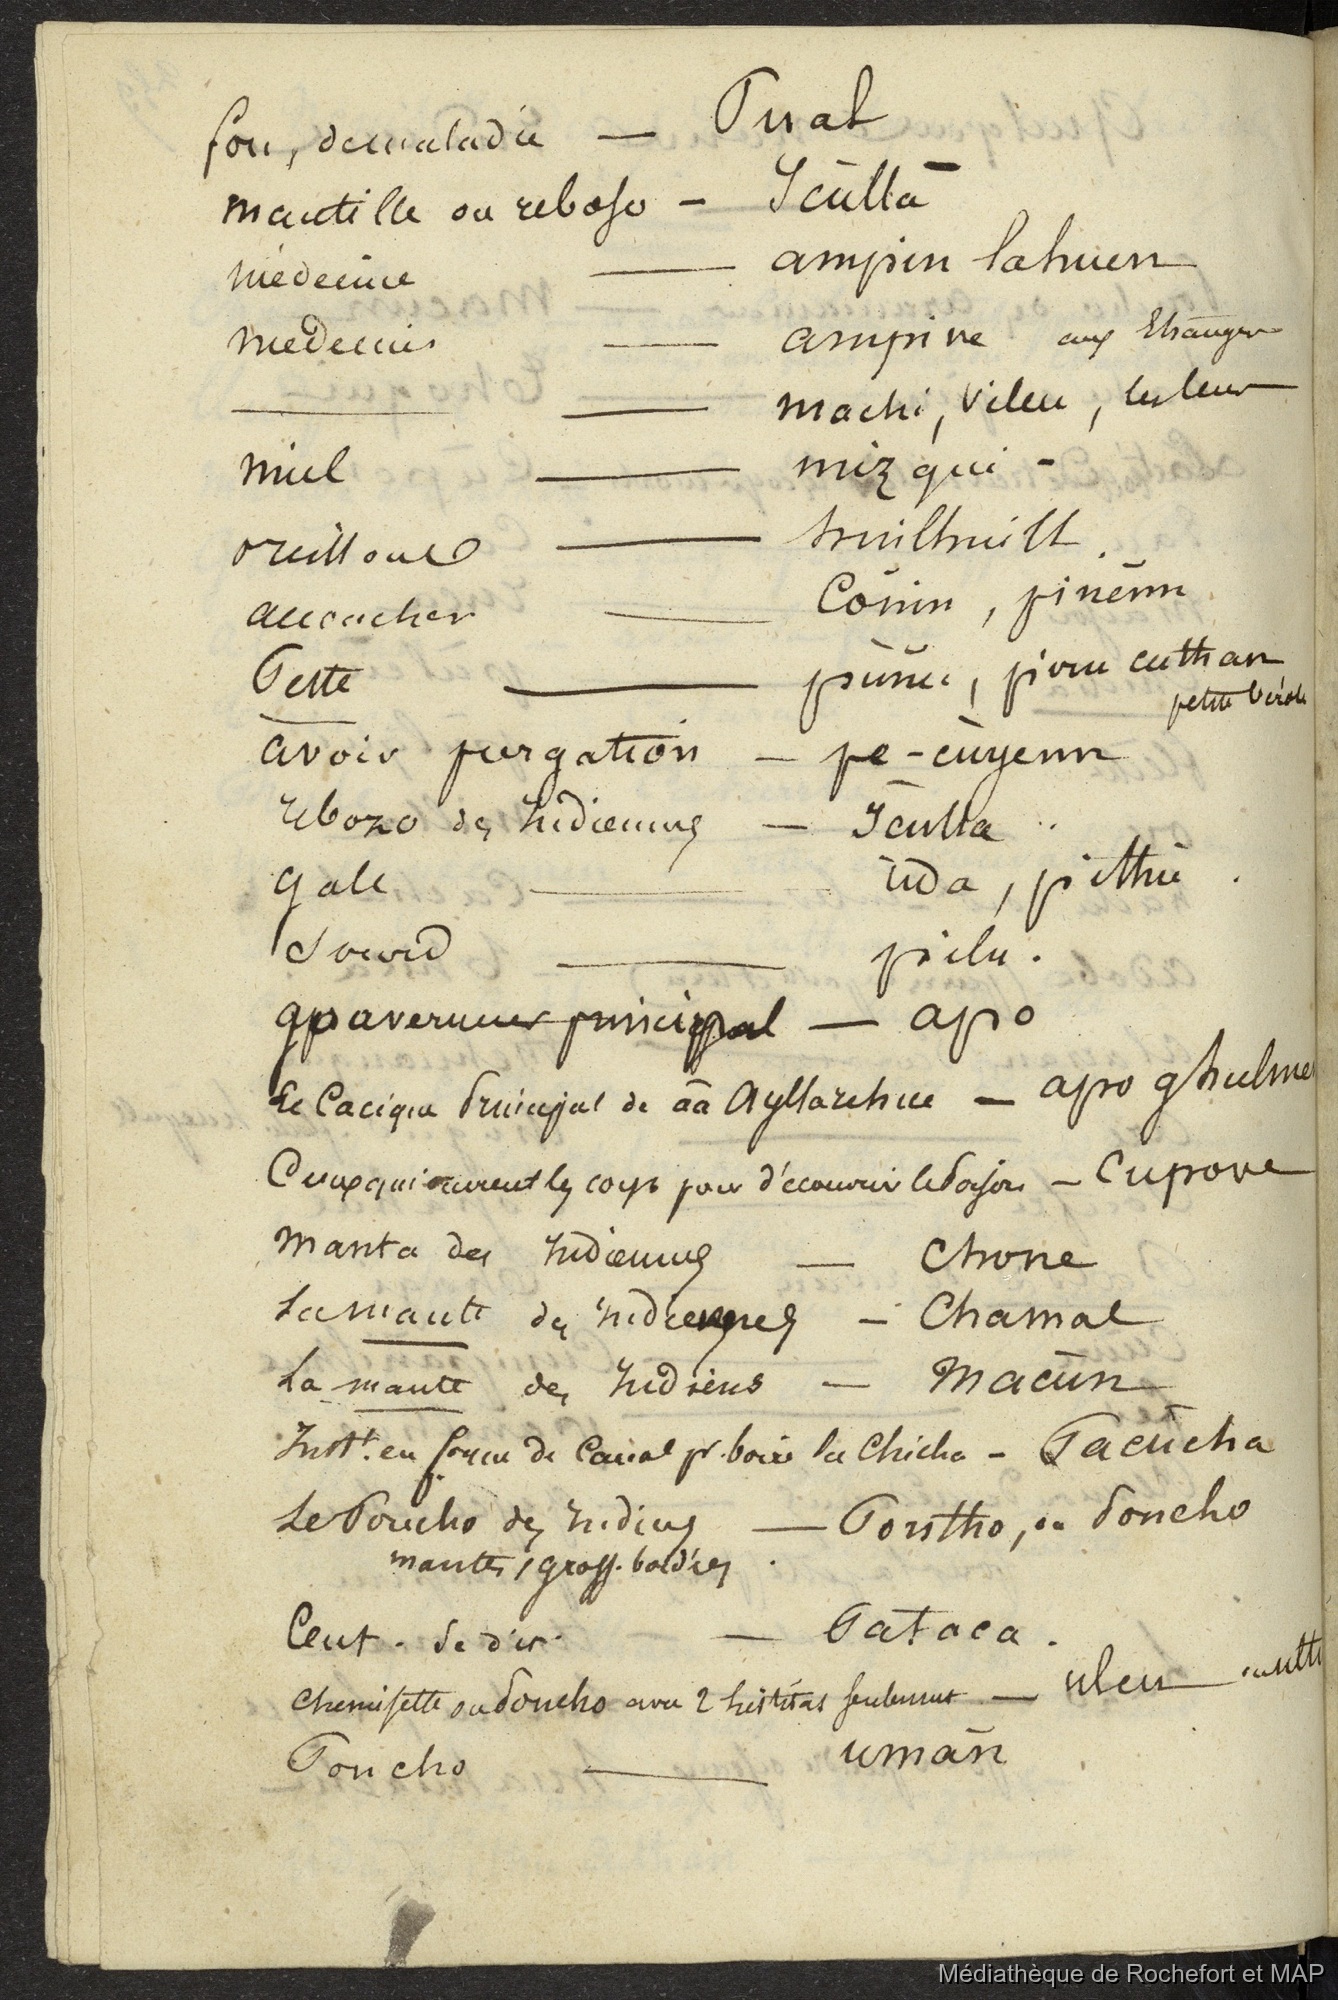 fou, de maladie — Tusal
mantille ou reboso — Iculla
médecine — ampin lahuen
medecins — ampive aux Etrangers
— machi, vileu, les leurs
miel — mizqui -
huilhuill.
accoucher — Cóñin, piñenn
Peste — piru cuthan
petite vérole
avoir purgation — pe-cùyenn
rebozo des Indiennes — Iculla
gale — üda, pitthü.
Sourd — pilu.
gouverneur principal — apo
Le Cacique Principal de Ayllarehue — apo ghulmen
Ceux qui ouvrent les corps pour découvrir le Poison — Cupove
Manta des Indiennes — Chone
La mante des Indiennes — Chamal
La mante des Indiens — Macùn
Inst.t en forme de Canal pr. boire la Chicha — Tacùcha
Le Poncho des Indiens — Pontho, ou Poncho
mantes,
Cent. — Pataca.
chemisette ou Poncho avec 2 seulement — uleu
Poncho — uman
Médiathèque de Rochefort et MAP